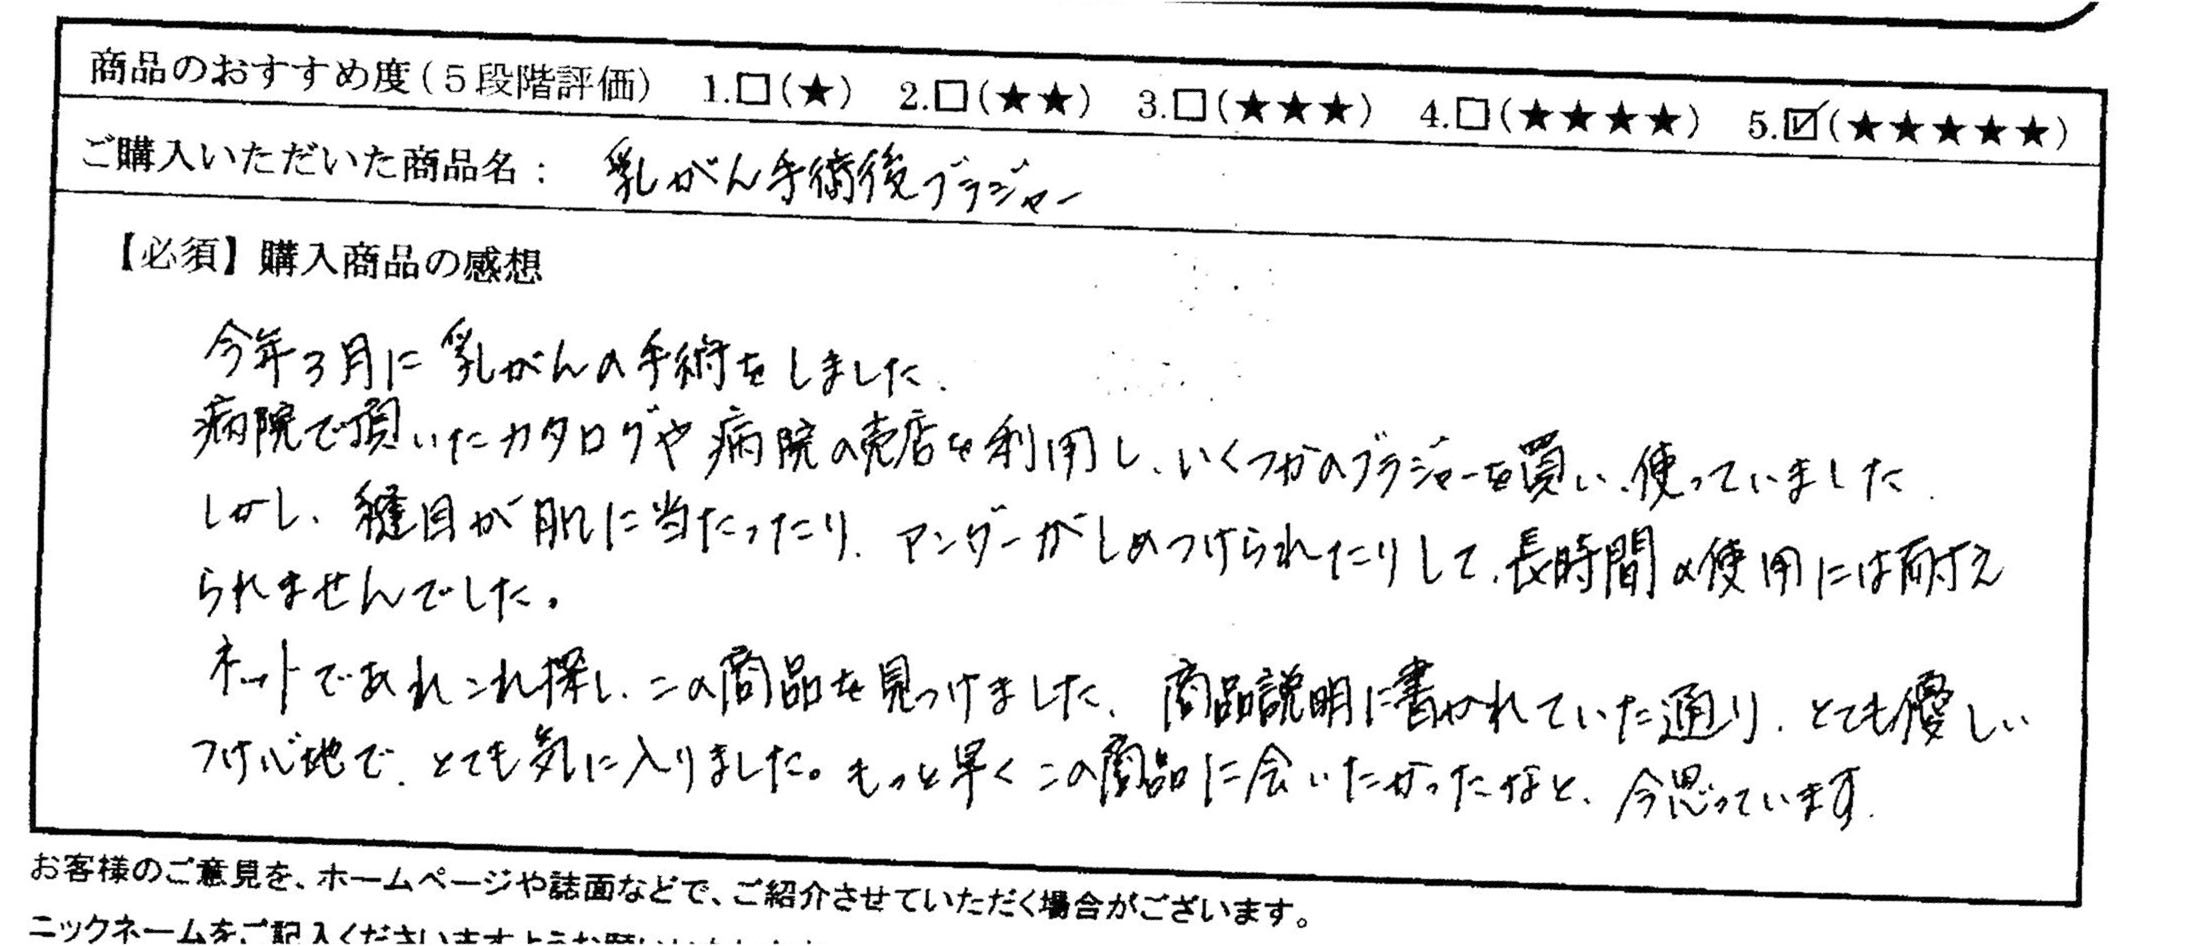 商品のおすすめ度(5段階評価) 1.□(★) 2.□(★★) 3.□(★★★) 4.□(★★★★) 5.☑(★★★★★)
ご購入いただいた商品名: 乳がん手術後ブラジャー
【必須】購入商品の感想
今年3月に乳がんの手術をしました.
病院で頂いたカタログや病院の売店を利用し、いくつかのブラジャーを買い、使っていました.
しかし、縫目が肌に当たったり、アンダーがしめつけられたりして、長時間の使用には耐え
られませんでした。
ネットであれこれ探し、この商品を見つけました、商品説明に書かれていた通り、とても優しい
つけ心地で、とても気に入りました。もっと早くこの商品に会いたかったなと、今思っています.
お客様のご意見を、ホームページや誌面などで、ご紹介させていただく場合がございます。
ニックネームをご記入くださいますようお願いいたします